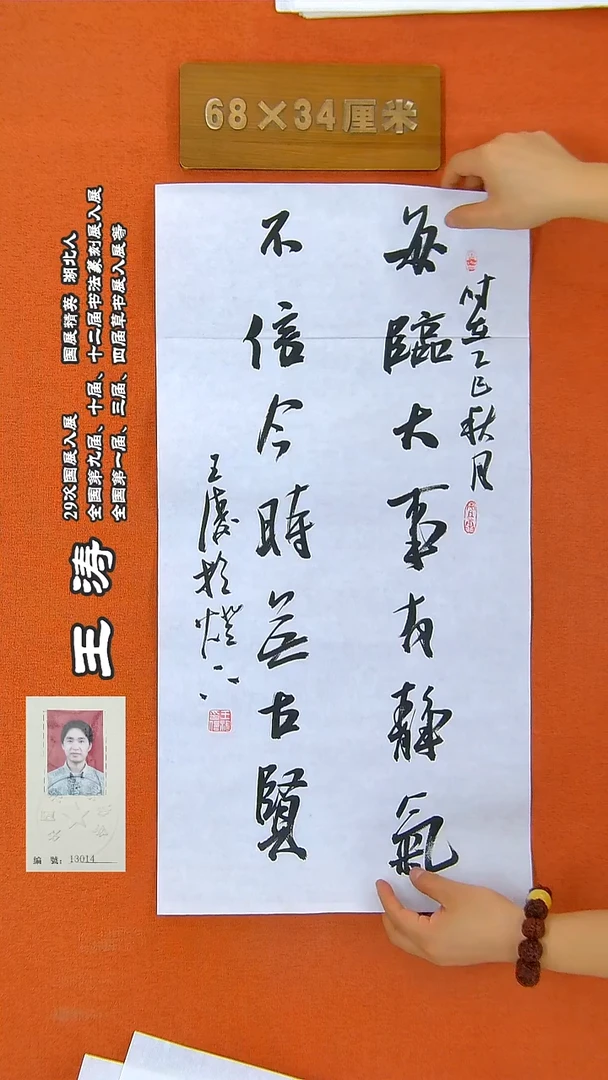 68×34厘米
每臨大事有靜氣
不信今時無古賢
时在乙巳秋月
王涛於燈下
王涛
29次国展入展 国展精英 湖北人
全国第九届、十届、十二届书法篆刻展入展
全国第一届、三届、四届草书展入展等
編 號：13014